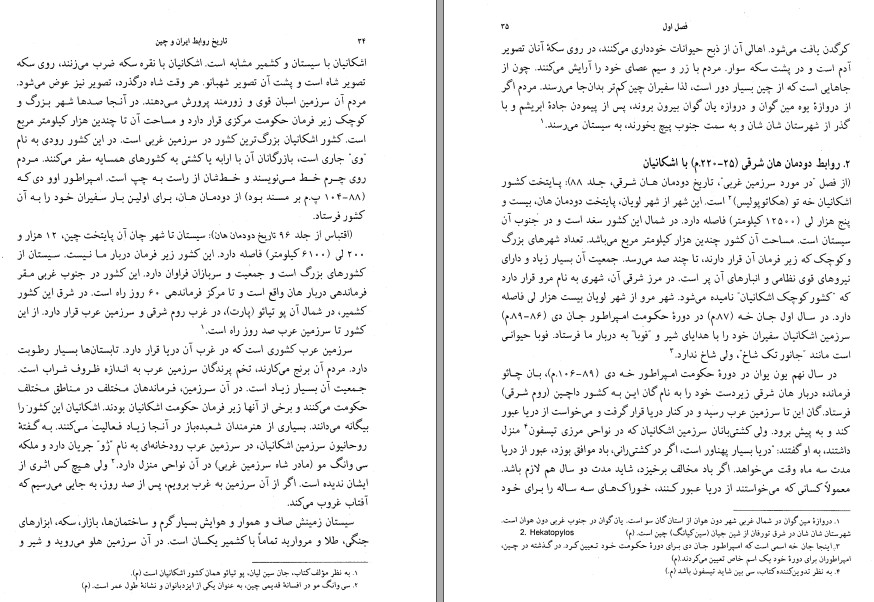 ۳۴ تاریخ روابط ایران و چین
اشکانیان با سیستان و کشمیر مشابه است. اشکانیان با نقره سکه ضرب می‌زنند، روی سکه
تصویر شاه است و پشت آن تصویر شهبانو. هر وقت شاه درگذرد، تصویر نیز عوض می‌شود.
مردم آن سرزمین اسبان قوی و زورمند پرورش می‌دهند. در آنجا صدها شهر بزرگ و
کوچک زیر فرمان حکومت مرکزی قرار دارد و مساحت آن تا چندین هزار کیلومتر مربع
است. کشور اشکانیان بزرگ‌ترین کشور در سرزمین غربی است. در این کشور رودی به نام
"وی" جاری است، بازرگانان آن با ارابه یا کشتی به کشورهای همسایه سفر می‌کنند. مردم
روی چرم خط می‌نویسند و خط‌شان از راست به چپ است. امپراطور اوو دی که
(۸۸-۱۰۴ پ.م بر مسند بود) از دودمان هان، برای اولین بار سفیران خود را به آن
کشور فرستاد.
(اقتباس از جلد ۹۶ تاریخ دودمان هان): سیستان تا شهر چان آن پایتخت چین، ۱۲ هزار و
۲۰۰ لی (۶۱۰۰ کیلومتر) فاصله دارد. این کشور زیر فرمان دربار ما نیست. سیستان از
کشورهای بزرگ است و جمعیت و سربازان فراوان دارد. این کشور در جنوب غربی مقر
فرماندهی دربار هان واقع است و تا مرکز فرماندهی ۶۰ روز راه است. در شرق این کشور
کشمیر، در شمال آن پو تیائو (پارت)، در غرب روم شرقی و سرزمین عرب قرار دارد. از این
کشور تا سرزمین عرب صد روز راه است.۱
سرزمین عرب کشوری است که در غرب آن دریا قرار دارد. تابستان‌ها بسیار رطوبت
دارد. مردم آن برنج می‌کارند، تخم پرندگان سرزمین عرب به اندازه ظروف شراب است.
جمعیت آن بسیار زیاد است. در آن سرزمین، فرمانده‌ان مختلف در مناطق مختلف
حکومت می‌کنند و برخی از آنها زیر فرمان حکومت اشکانیان بودند. اشکانیان این کشور را
بیگانه می‌دانند. بسیاری از هنرمندان شعبده‌باز در آنجا زیاد فعالیت می‌کنند. به گفتهٔ
روحانیون سرزمین اشکانیان، در سرزمین عرب رودخانه‌ای به نام "ژو" جریان دارد و ملکه
سی وانگ مو (مادر شاه سرزمین غربی) در آن نواحی منزل دارد.۲ ولی هیچ کس اثری از
ایشان ندیده است. اگر از آن سرزمین به غرب برویم، پس از صد روز، به جایی می‌رسیم که
آفتاب غروب می‌کند.
سیستان زمینش صاف و هموار و هوایش بسیار گرم و ساختمان‌ها، بازار، سکه، ابزارهای
جنگی، طلا و مروارید تماماً با کشمیر یکسان است. در آن سرزمین هلو می‌روید و شیر و
۱. به نظر مؤلف کتاب، جان سین لیان، پو تیائو همان کشور اشکانیان است (م).
۲. سی وانگ مو در افسانهٔ قدیمی چین، به عنوان یکی از ایزدبانوان و نشانهٔ طول عمر است. (م)
فصل اول ۳۵
کرگدن یافت می‌شود. اهالی آن از ذبح حیوانات خودداری می‌کنند، در روی سکهٔ آنان تصویر
آدم است و در پشت سکه سوار. مردم با زر و سیم عصای خود را آرایش می‌کنند. چون از
جاهایی است که از چین بسیار دور است، لذا سفیران چین کم‌تر بدان‌جا می‌رسند. مردم اگر
از دروازهٔ یوه مین گوان و دروازه یان گوان بیرون بروند، پس از پیمودن جادهٔ ابریشم و با
گذر از شهرستان شان شان و به سمت جنوب پیچ بخورند، به سیستان می‌رسند.۱
۲. روابط دودمان هان شرقی (۲۵-۲۲۰م.) با اشکانیان
(از فصل "در مورد سرزمین غربی"، تاریخ دودمان هان شرقی، جلد ۸۸): پایتخت کشور
اشکانیان خه تو (هکاتوپولیس)۲ است. این شهر از شهر لویان، پایتخت دودمان هان، بیست و
پنج هزار لی (۱۲۵۰۰ کیلومتر) فاصله دارد. در شمال این کشور سغد است و در جنوب آن
سیستان است. مساحت آن کشور چندین هزار کیلومتر مربع می‌باشد. تعداد شهرهای بزرگ
و کوچک که زیر فرمان آن قرار دارند، تا چند صد می‌رسد. جمعیت آن بسیار زیاد و دارای
نیروهای قوی نظامی و انبارهای آن پر است. در مرز شرقی آن، شهری به نام مرو قرار دارد
که "کشور کوچک اشکانیان" نامیده می‌شود. شهر مرو از شهر لویان بیست هزار لی فاصله
دارد. در سال اول جان خـه (۸۷م) در دورهٔ حکومت امپراطور جان دی (۸۶-۸۹م)
سرزمین اشکانیان سفیران خود را با هدایای شیر و "فوبا" به دربار ما فرستاد. فوبا حیوانی
است مانند "جانور تک شاخ"، ولی شاخ ندارد.۳
در سال نهم یون یوان در دورهٔ حکومت امپراطور خـه دی (۸۹-۱۰۶م.)، بـان چائو
فرمانده دربار هان شرقی زیردست خود را به نام گان این به کشور داچین (روم شرقی)
فرستاد. گان این تا سرزمین عرب رسید و در کنار دریا قرار گرفت و می‌خواست از دریا عبور
کند و به پیش برود. ولی کشتی‌بانان سرزمین اشکانیان که در نواحی مرزی تیسفون۴ منزل
داشتند، به او گفتند: "دریا بسیار پهناور است، اگر در کشتی‌رانی، باد موافق بوزد، عبور از دریا
مدت سه ماه وقت می‌خواهد. اگر باد مخالف برخیزد، شاید مدت دو سال هم لازم باشد.
معمولاً کسانی که می‌خواستند از دریا عبور کنند، خوراک‌های سه ساله را برای خود
۱. دروازهٔ مین گوان در شمال غربی شهر دون هوان از استان گان سو است. یان گوان در جنوب غربی دون هوان است.
شهرستان شان شان در شرق تورفان از شین جیان (سین کیانگ) چین است. (م) 2. Hekatopylos
۳. اینجا جان خه اسمی است که امپراطور جان دی برای دورهٔ حکومت خود تعیین کرد. در گذشته در چین،
امپراطوران برای دورهٔ خود یک اسم خاص تعیین می‌کردند.(م)
۴. به نظر تدوین‌کننده کتاب، سی بین شاید تیسفون باشد (م.)